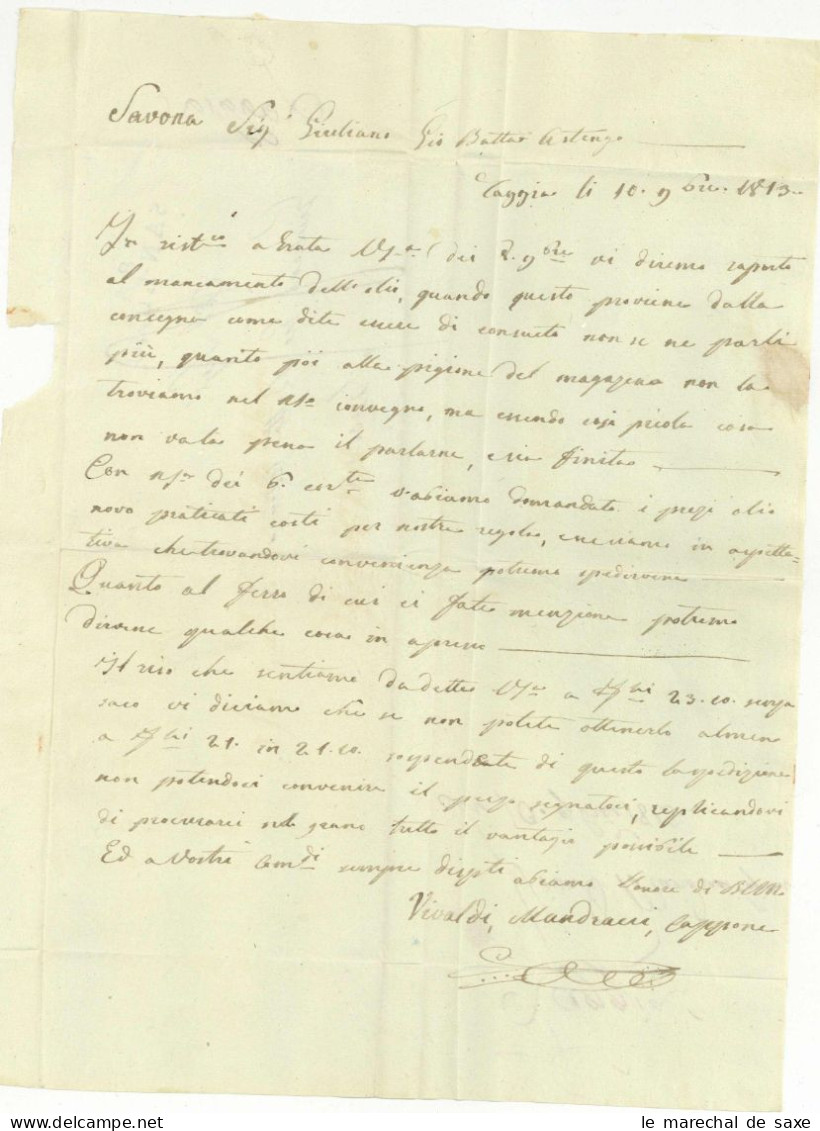 Savona Sig.r Giuliano Gio Batta Astengo
Taggia li 10. 9bre. 1813.
In rist.co a grata V.a dei 2. 9bre vi diremo raporto
al mancamento dell'olio, quando questo proviene dalla
consegna come dite essere di consueto non se ne parli
più, quanto poi alla pigione del magazeno non la
troviamo nel N.o convegno, ma essendo così picola cosa
non vale pena il parlarne, e sia finita
Con N.a dei 6. cor.te v'abiamo domandato i prezi olio
novo praticati costì per nostra regola, e ne siamo in aspetta=
tiva che trovandovi convenienza potremo spedirvene
Quanto al ferro di cui ci fate menzione potremo
dirvene qualche cosa in apreso
Il riso che sentiamo da detta V.a a 23.10. senza
saco vi diciamo che se non potete ottenerlo almen
a 21. in 21.10. sospendete di questo la spedizione
non potendoci convenire il prezo segnatoci, replicandovi
di procurarci nel grano tutto il vantagio possibile
Ed a Vostri Com.di sempre disp.ti abiamo l'onore di
Vivaldi, Mandracci, Cappone
le marechal de saxe